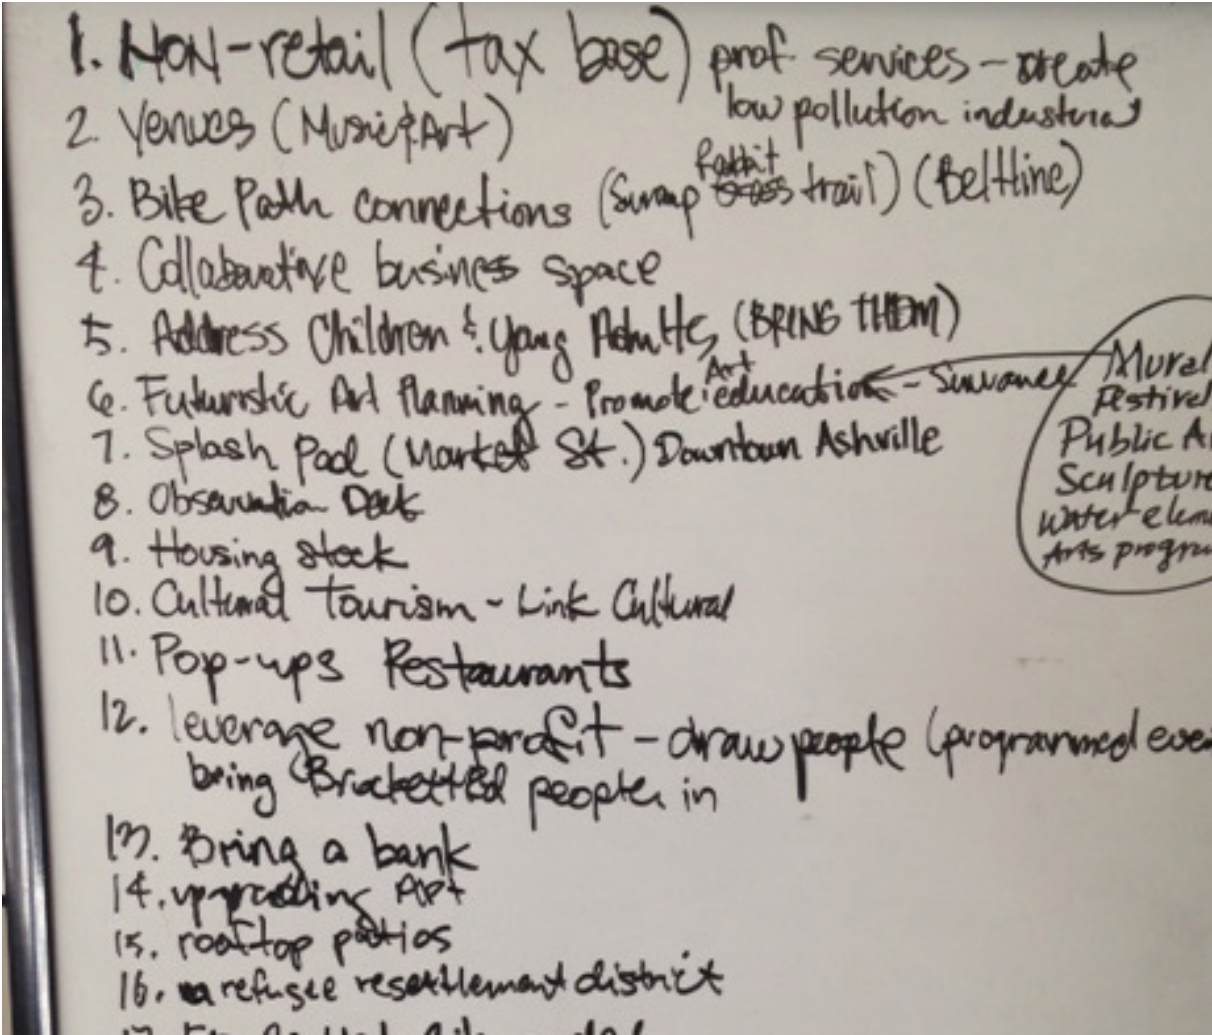 1. NON-retail (tax base) prof. services - create
low pollution industrial
2. Venues (Music & Art)
3. Bike Path connections (Swamp Rabbit trail) (Beltline)
4. Collaborative business space
5. Address Children & Young Adults (BRING THEM)
6. Futuristic Art Planning - Promote Art education - Suwanee
7. Splash Pad (Market St.) Downtown Ashville
8. Observation Deck
9. Housing stock
10. Cultural Tourism - Link Cultural
11. Pop-ups Restaurants
12. leverage non-profit - draw people (programmed eve
bring people in
13. Bring a bank
14. upgrading Apt
15. rooftop patios
16. refugee resettlement district
Mural
Festivel
Public A
Sculpture
Water elem
Arts progra